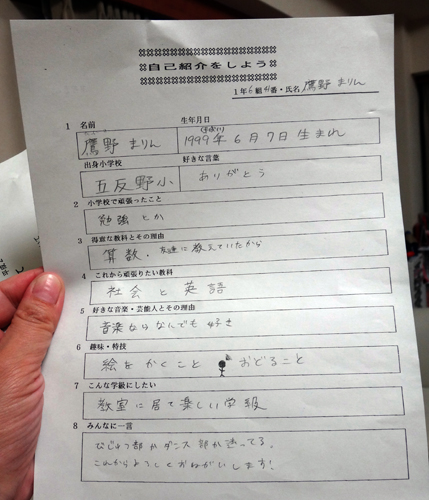 自己紹介をしよう
1年6組 番・氏名 鷹野 まりん
1 名前 生年月日
鷹野 まりん 1999年 6月7日 生まれ
出身小学校 好きな言葉
五反野小 ありがとう
2 小学校で頑張ったこと
勉強とか
3 得意な教科とその理由
算数.友達に教えていたから
4 これから頑張りたい教科
社会と英語
5 好きな音楽・芸能人とその理由
音楽ならなんでも好き
6 趣味・特技
絵をかくこと おどること
7 こんな学級にしたい
教室に居て楽しい学級
8 みんなに一言
びじゅつ部かダンス部か迷ってる.
これからよろしくおねがいします!